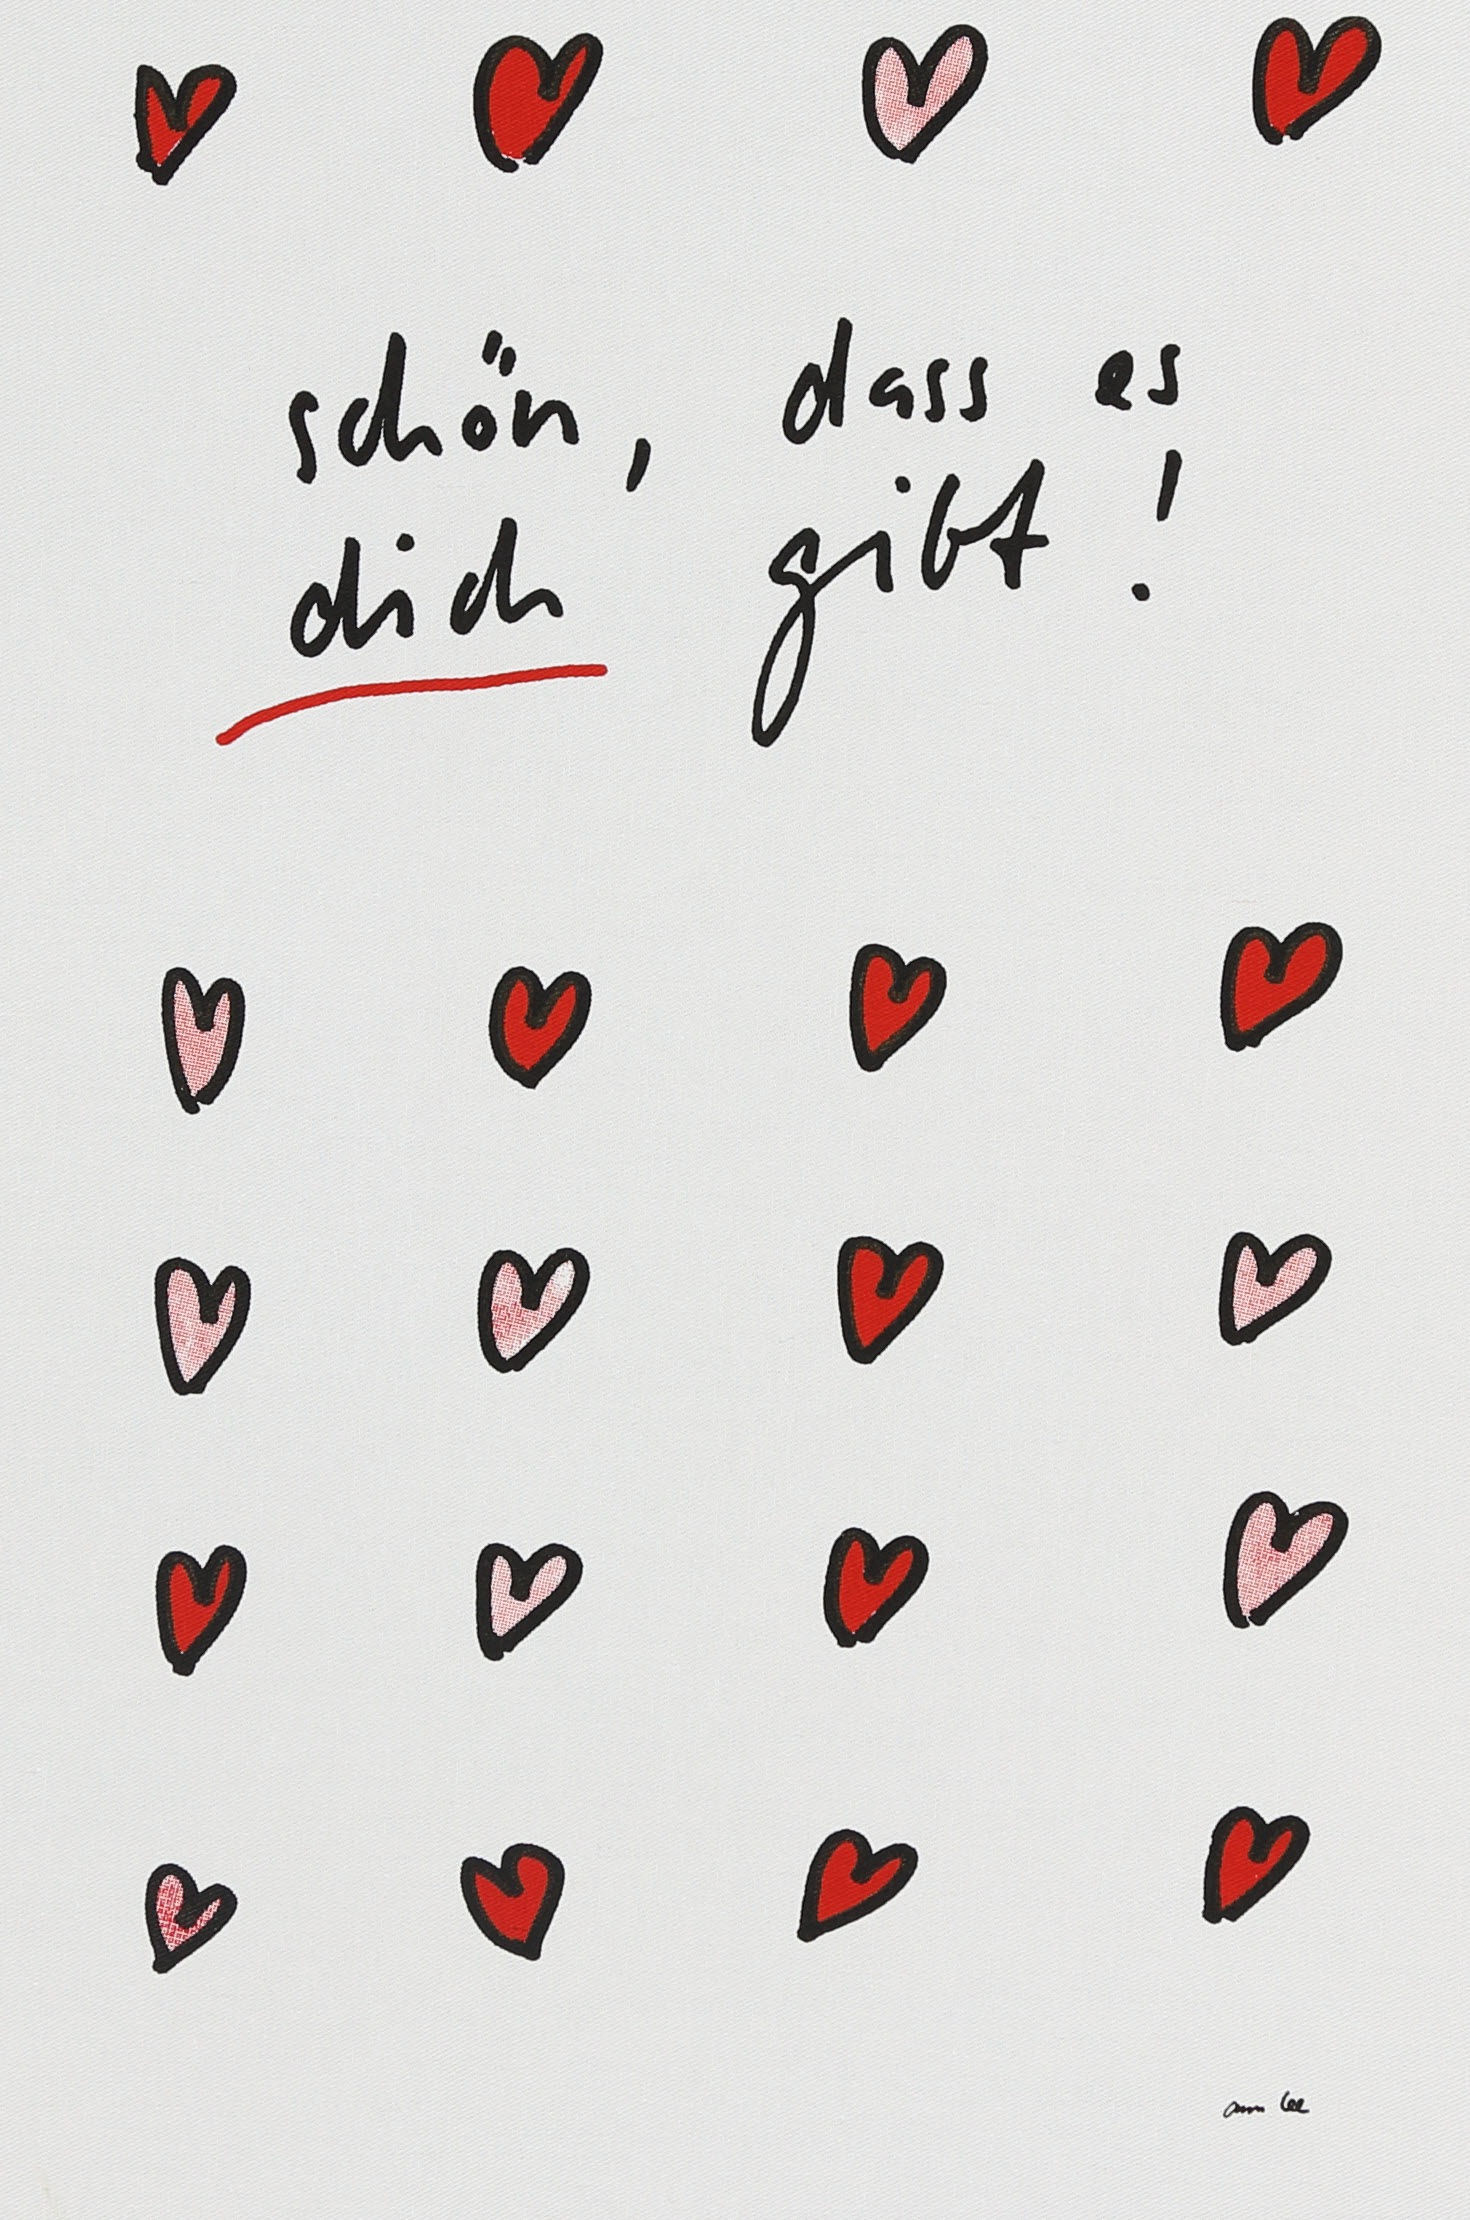 schön, dass es
dich gibt!
ann lee